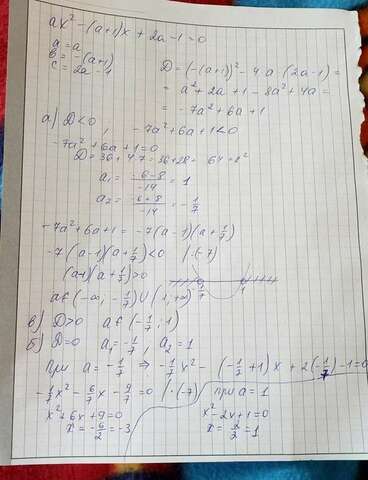 ax² - (a+1)x + 2a - 1 = 0
a = a
в = -(a+1)
c = 2a - 1
D = (-(a+1))² - 4·a·(2a-1) =
= a² + 2a + 1 - 8a² + 4a =
= -7a² + 6a + 1
а) D < 0, -7a² + 6a + 1 < 0
-7a² + 6a + 1 = 0
D = 36 + 4·7 = 36 + 28 = 64 = 8²
a₁ = -6-8/-14 = 1
a₂ = -6+8/-14 = -1/7
-7a² + 6a + 1 = -7(a-1)(a+1/7)
-7(a-1)(a+1/7) < 0 | ·(-7)
(a-1)(a+1/7) > 0
-1/7 1
a ∈ (-∞; -1/7) ∪ (1; +∞)
в) D > 0 a ∈ (-1/7; 1)
б) D = 0 a₁ = -1/7, a₂ = 1
при a = -1/7 ⇒ -1/7x² - (-1/7+1)x + 2(-1/7) - 1 = 0
-1/7x² - 6/7x - 9/7 = 0 | ·(-7) при a = 1
x² + 6x + 9 = 0 x² - 2x + 1 = 0
x = -6/2 = -3 x = 2/2 = 1